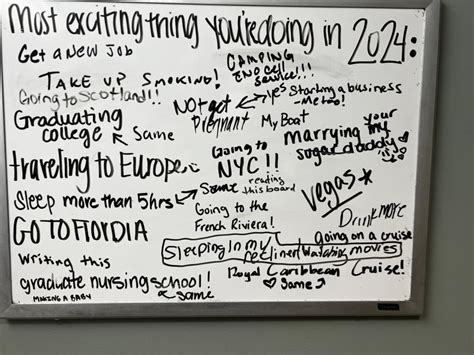 Most exciting thing you're doing in 2024:
Get a New Job
CAMPING
IN NO CELL
SERVICE!!!
TAKE UP SMOKING!
Going to Scotland!!!
NOT get
Pregnant
← yes
Starting a business
- Me too!
Graduating
college
← Same
My Boat
marrying my
your
sugar daddy
traveling to Europe
Going to
NYC!!
Sleep more than 5hrs
← Same
reading
this board
VEGAS*
Drink more
GO TO FLORDIA
Going to the
French Riviera!
going on a cruise
Sleeping in my
recliner/Watching movies
Writing this
graduate nursing school!
← same
Royal Caribbean Cruise!
♡ Same
MAKING A BABY